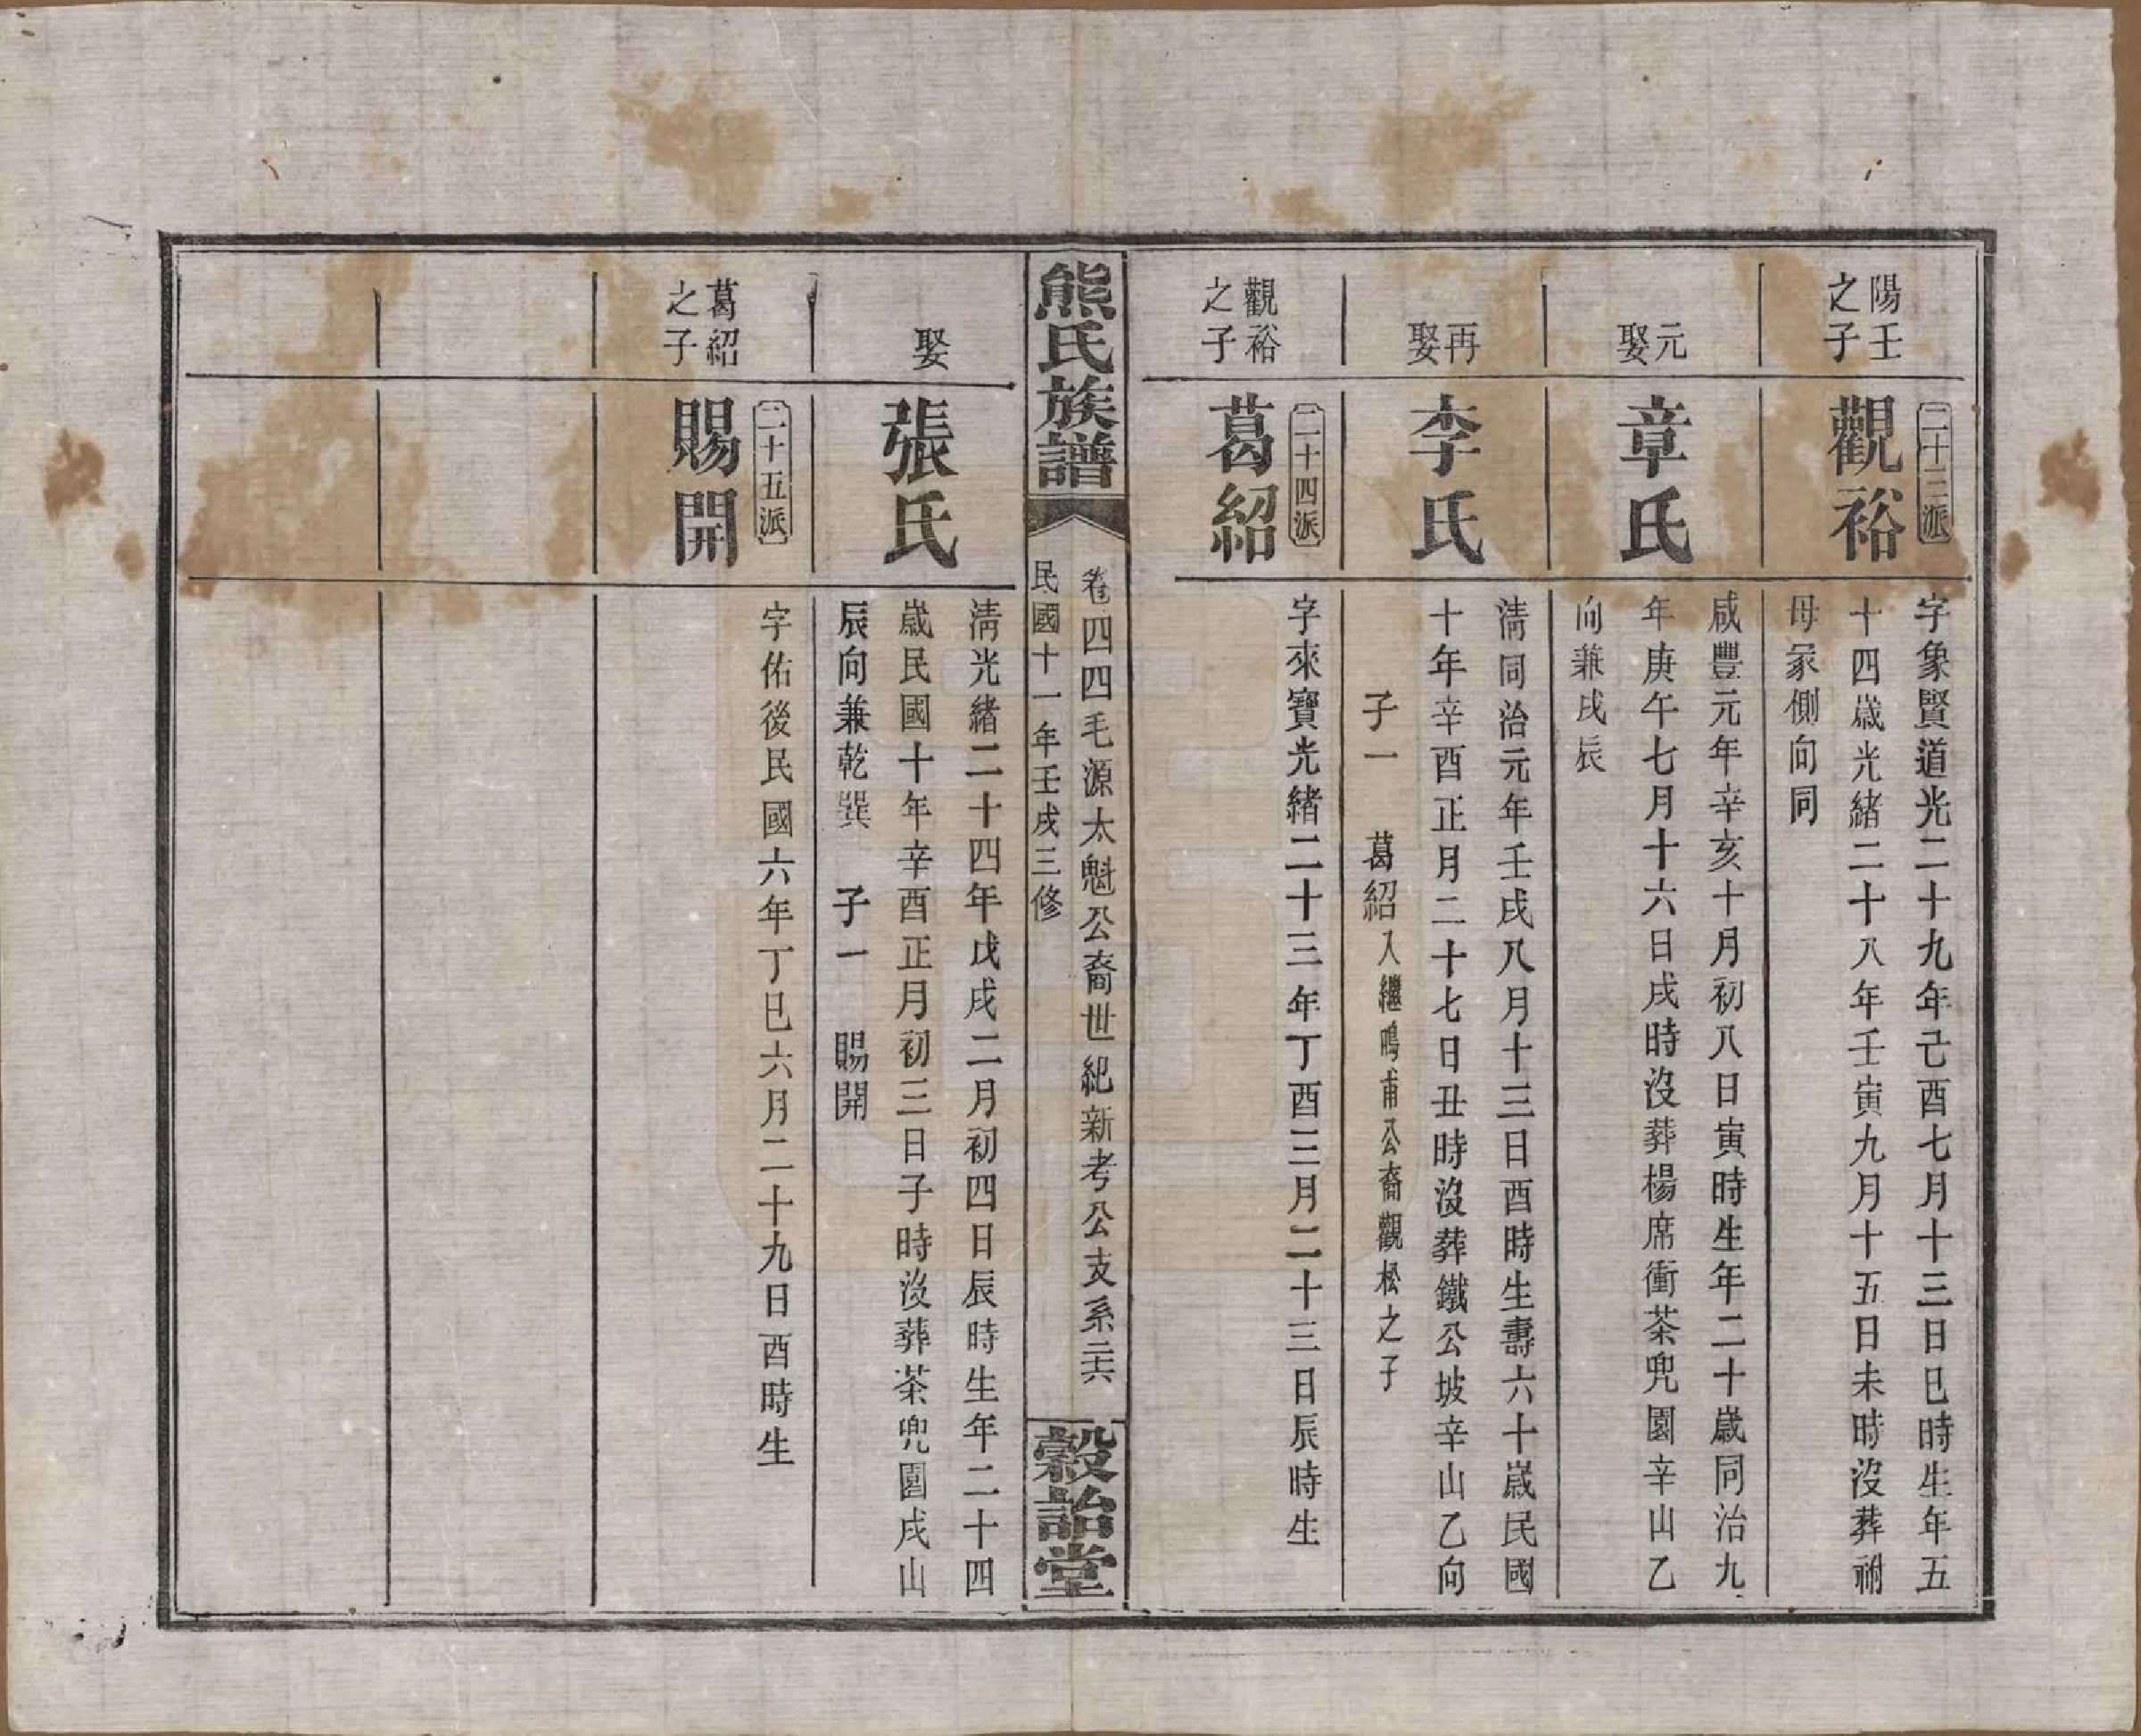 陽壬
之子
二十三派
觀裕
字象賢道光二十九年己酉七月十三日巳時生年五
十四歲光緒二十八年壬寅九月十五日未時沒葬祔
母冢側向同
元
娶
章氏
咸豐元年辛亥十月初八日寅時生年二十歲同治九
年庚午七月十六日戌時沒葬楊席衝茶兜園辛山乙
向兼戌辰
再
娶
李氏
淸同治元年壬戌八月十三日酉時生壽六十歲民國
十年辛酉正月二十七日丑時沒葬鐵公坡辛山乙向
子一 葛紹入繼鳴甫公裔觀松之子
觀裕
之子
二十四派
葛紹
字來寶光緒二十三年丁酉三月二十三日辰時生
熊氏族譜
卷四四毛源太魁公裔世紀新考公支系二六
民國十一年壬戌三修
穀詒堂
娶
張氏
淸光緒二十四年戊戌二月初四日辰時生年二十四
歲民國十年辛酉正月初三日子時沒葬茶兜園戌山
辰向兼乾巽 子一 賜開
葛紹
之子
二十五派
賜開
字佑後民國六年丁巳六月二十九日酉時生